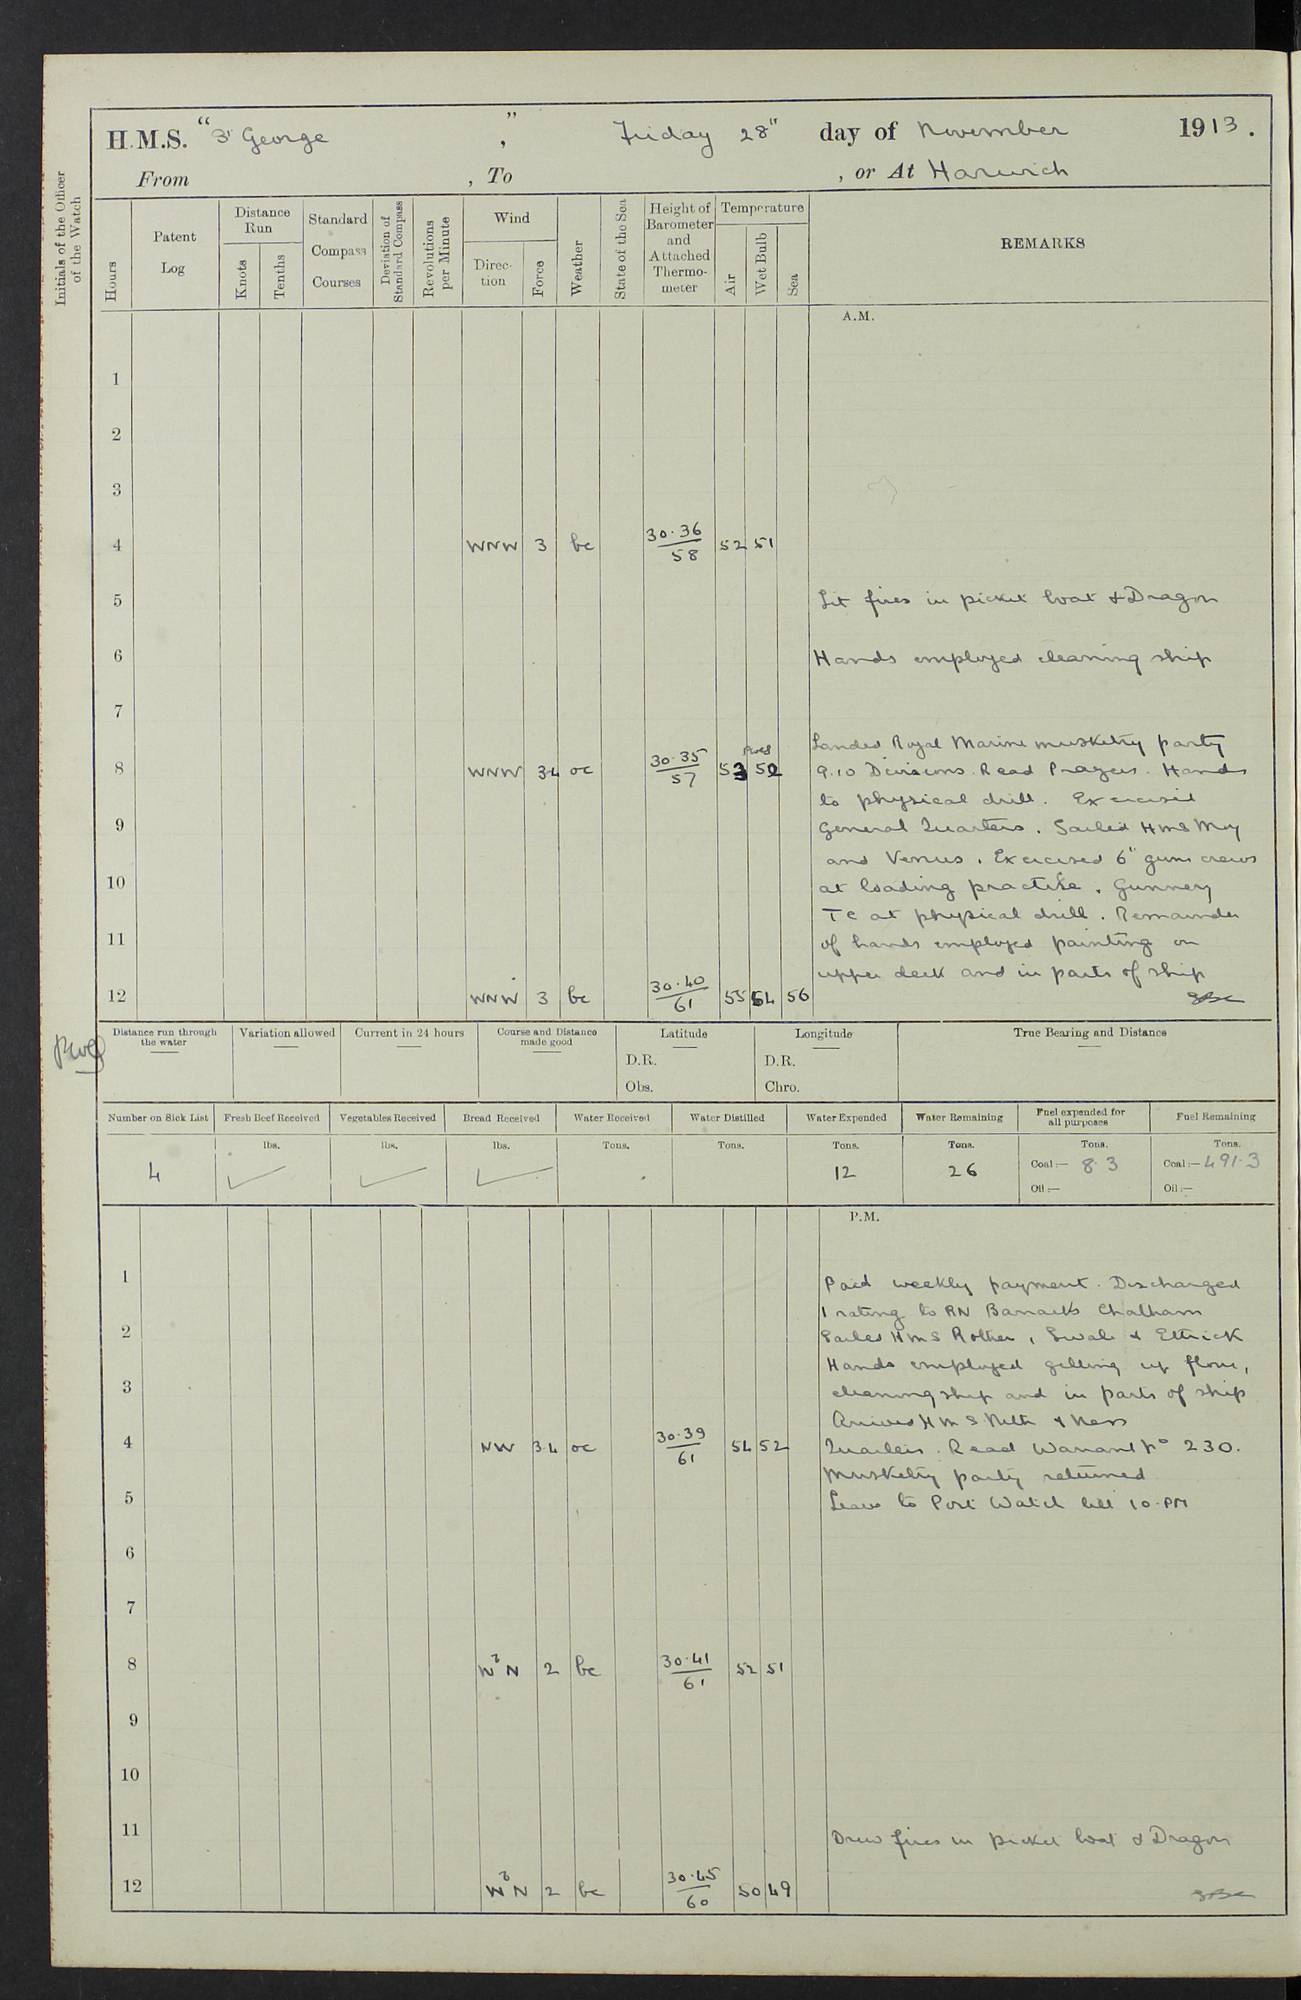 H.M.S. " St George " , Friday 28" day of November 1913.
From , To , or At Harwich
Initials of the Officer of the Watch
Hours
Patent Log
Distance Run
Knots
Tenths
Standard Compass Courses
Deviation of Standard Compass
Revolutions per Minute
Wind
Direction
Force
Weather
State of the Sea
Height of Barometer and Attached Thermometer
Temperature
Air
Wet Bulb
Sea
REMARKS
A.M.
1
2
3
4 WNW 3 bc 30.36/58 52 51
5 Lit fires in picket boat & Dragon
6 Hands employed cleaning ship
7
Landed Royal Marine musketry party
8 WNW 3.4 oc 30.35/57 53 52 9.10 Divisions. Read Prayers. Hands
to physical drill. Exercised
9 General Quarters. Sailed HMS Moy
and Venus. Exercised 6" guns crews
10 at loading practice. Gunnery
TC at physical drill. Remainder
11 of hands employed painting on
upper deck and in parts of ship
12 WNW 3 bc 30.40/61 55 54 56
Distance run through the water
Variation allowed
Current in 24 hours
Course and Distance made good
Latitude
D.R.
Obs.
Longitude
D.R.
Chro.
True Bearing and Distance
Number on Sick List
Fresh Beef Received
Vegetables Received
Bread Received
Water Received
Water Distilled
Water Expended
Water Remaining
Fuel expended for all purposes
Fuel Remaining
lbs. lbs. lbs. Tons. Tons. Tons. Tons. Tons. Tons.
4 12 26 Coal:— 8.3 Coal:— 491.3
Oil:— Oil:—
P.M.
1 Paid weekly payment. Discharged
1 rating to RN Barracks Chatham
2 Sailed HMS Rother, Swale & Ettrick
Hands employed getting up flour,
3 cleaning ship and in parts of ship
Arrived HMS Nith & Ness
4 NW 3.4 oc 30.39/61 54 52 Quarters. Read Warrant No 230.
Musketry party returned
5 Leave to Port Watch till 10.PM
6
7
8 WbN 2 bc 30.41/61 52 51
9
10
11 Drew fires in picket boat & Dragon
12 WbN 2 bc 30.45/60 50 49